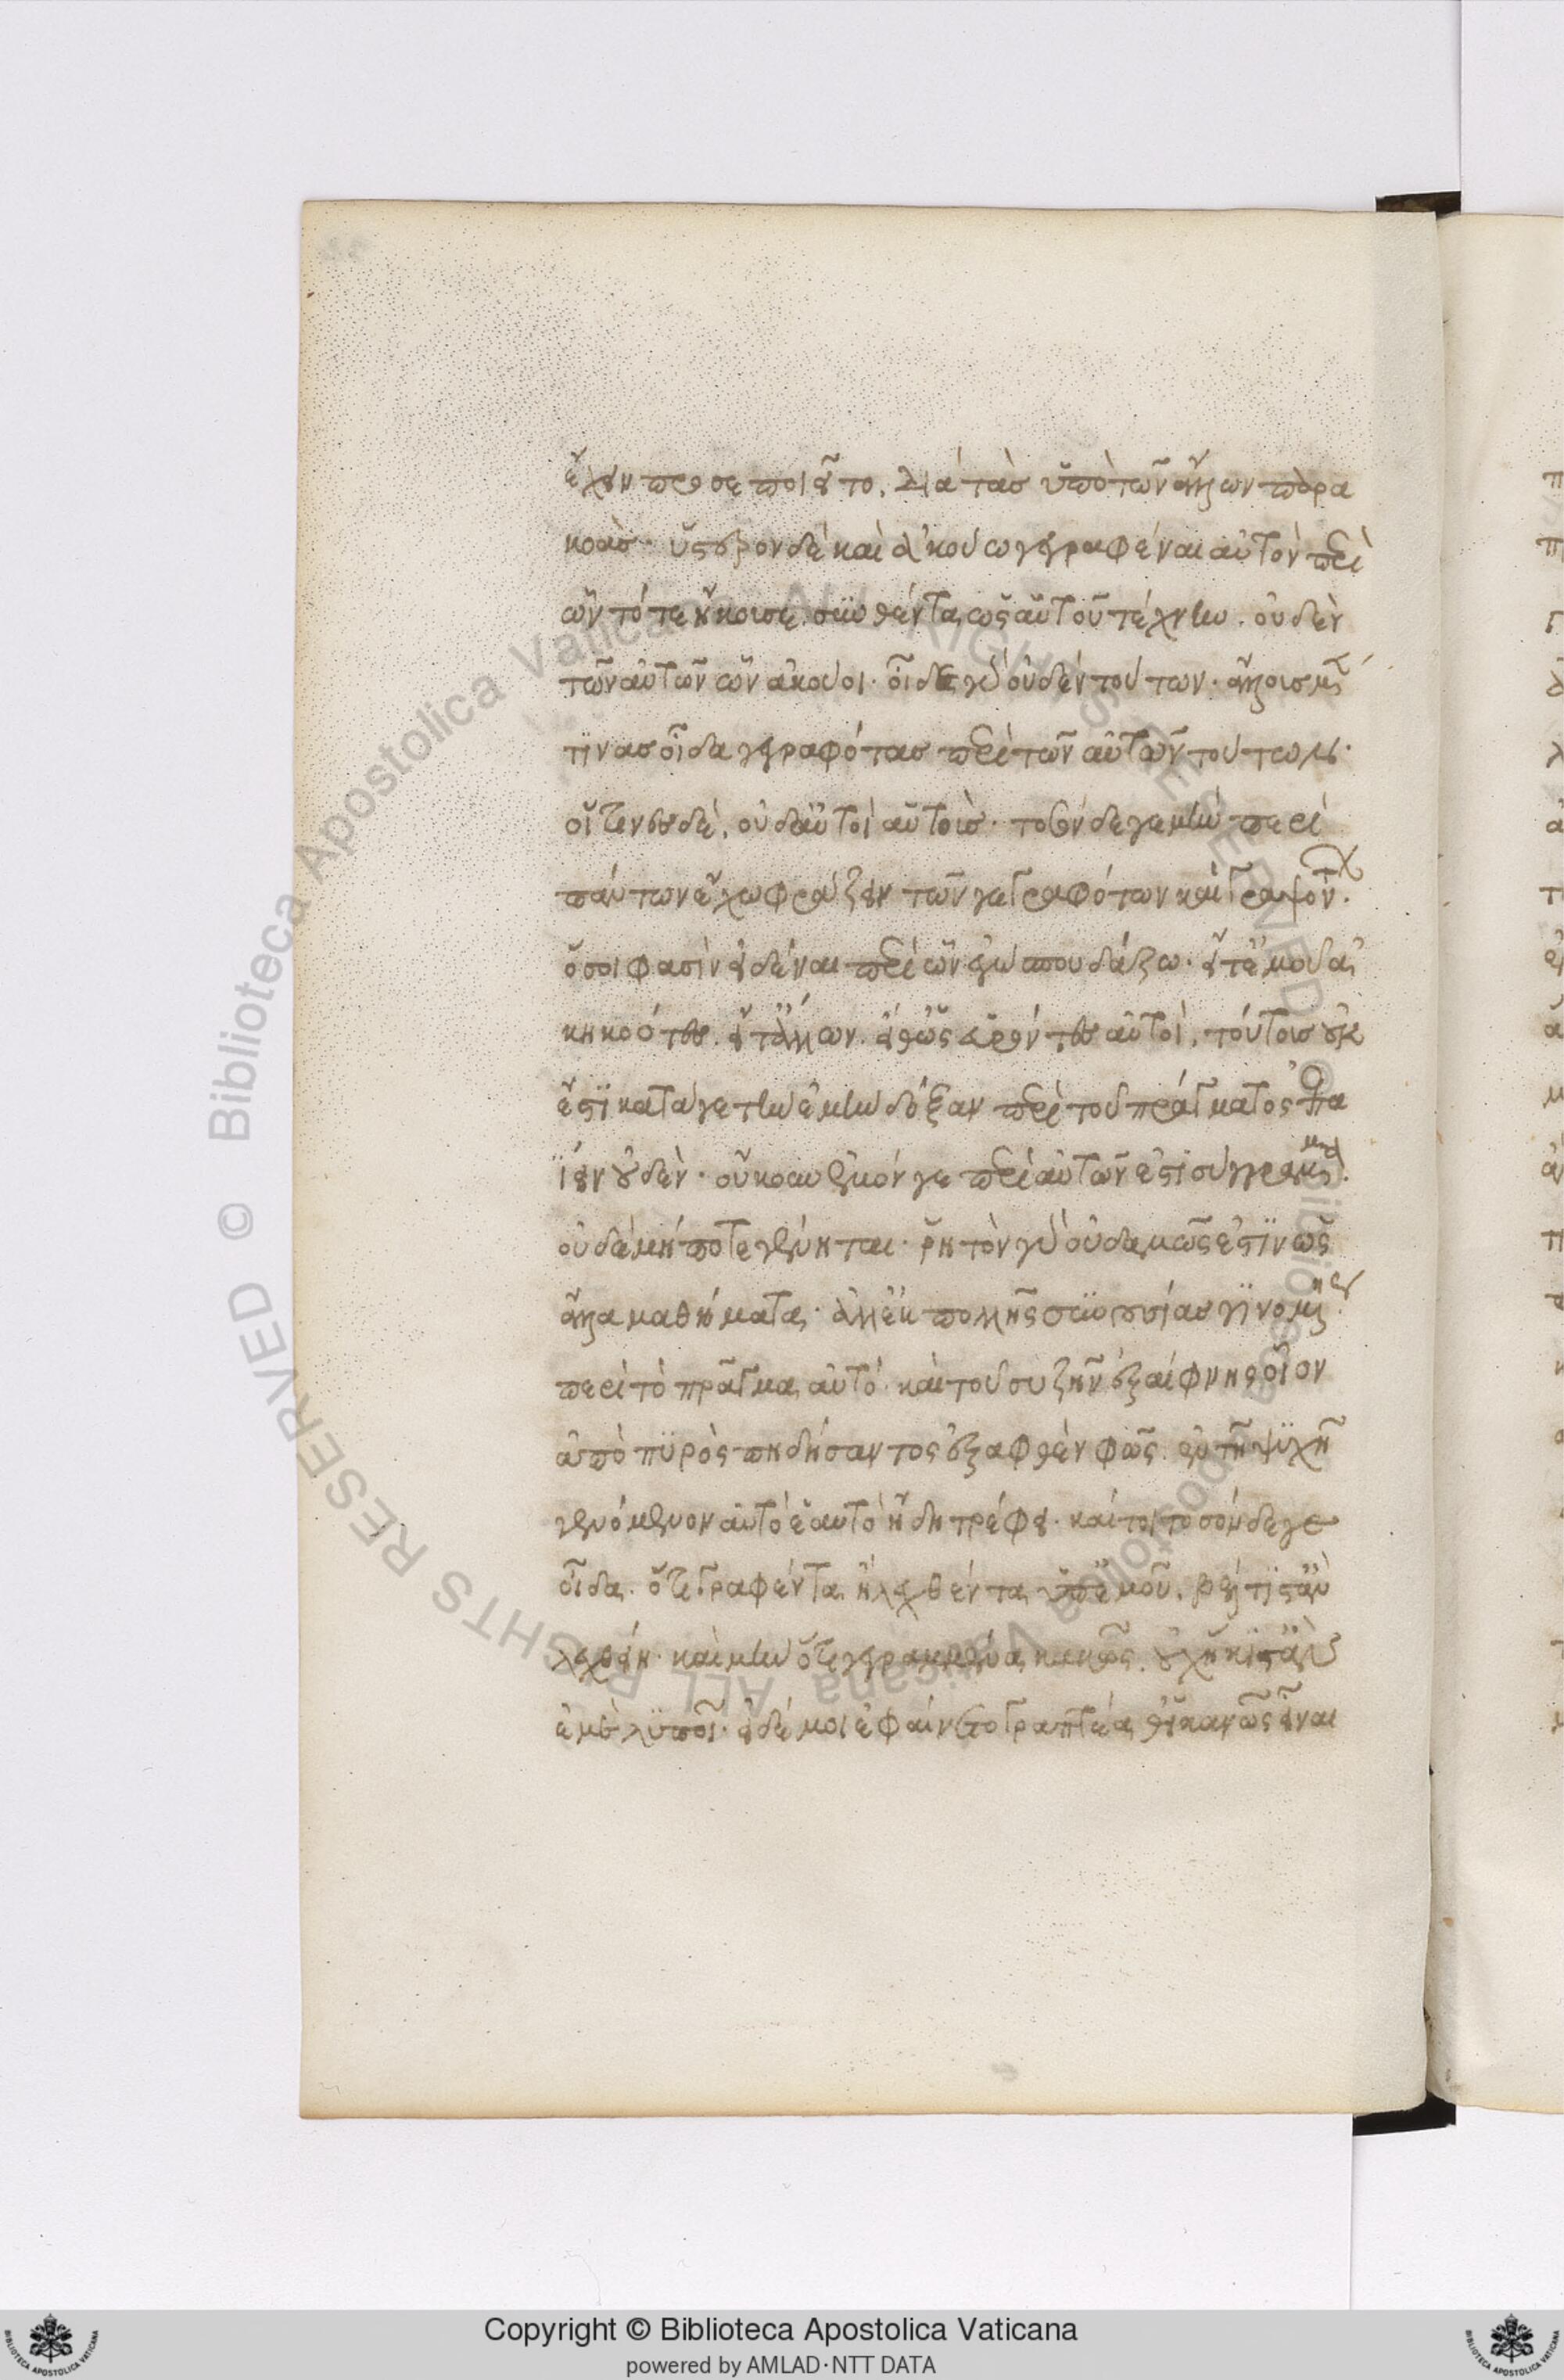 ἔχειν προσεποιεῖτο. διὰ τὰς ὑπὸ τῶν ἄλλων παρα
κοάς· ὕστερον δὲ καὶ ἀκούω γεγραφέναι αὐτὸν περὶ
ὧν τότε ἤκουσε. συνθέντα ὡς αὑτοῦ τέχνην. οὐδὲν
τῶν αὐτῶν ὧν ἀκούοι· οἶδα γὰρ οὐδὲν τούτων· ἄλλους μὲν
τινὰς οἶδα γεγραφότας περὶ τῶν αὐτῶν τούτων·
οἵτινες δὲ, οὐδ' αὐτοὶ αὑτούς· τοσόνδε γε μὴν περὶ
πάντων ἔχω φράζειν τῶν γεγραφότων καὶ γραψόντων.
ὅσοι φασὶν εἰδέναι περὶ ὧν ἐγὼ σπουδάζω· εἴτ' ἐμοῦ ἀ
κηκοότες. εἴτ' ἄλλων. εἴθ' ὡς εὑρόντες αὐτοὶ, τούτους οὐκ
ἔστι κατά γε τὴν ἐμὴν δόξαν περὶ τοῦ πράγματος ἐπα
ΐειν οὐδὲν· οὔκουν ἐμόν γε περὶ αὐτῶν ἐστὶ σύγγραμμα.
οὐδὲ μήποτε γένηται· ῥητὸν γὰρ οὐδαμῶς ἐστὶν ὡς
ἄλλα μαθήματα· ἀλλ' ἐκ πολλῆς συνουσίας γινομένης
περὶ τὸ πρᾶγμα αὐτό· καὶ τοῦ συζῆν ἐξαίφνης οἷον
ἀπὸ πυρὸς πηδήσαντος ἐξαφθὲν φῶς. ἐν τῇ ψυχῇ
γενόμενον αὐτὸ ἑαυτὸ ἤδη τρέφει· καίτοι τοσόνδε γε
οἶδα. ὅτι γραφέντα ἢ λεχθέντα ὑπ' ἐμοῦ. βέλτιστ' ἂν
λεχθείη· καὶ μὴν ὅτι γεγραμμένα κακῶς. οὐχ ἥκιστ' ἂν
ἐμὲ λυποῖ· εἰ δέ μοι ἐφαίνετο γραπτέα θ' ἱκανῶς εἶναι
Copyright © Biblioteca Apostolica Vaticana
powered by AMLAD·NTT DATA